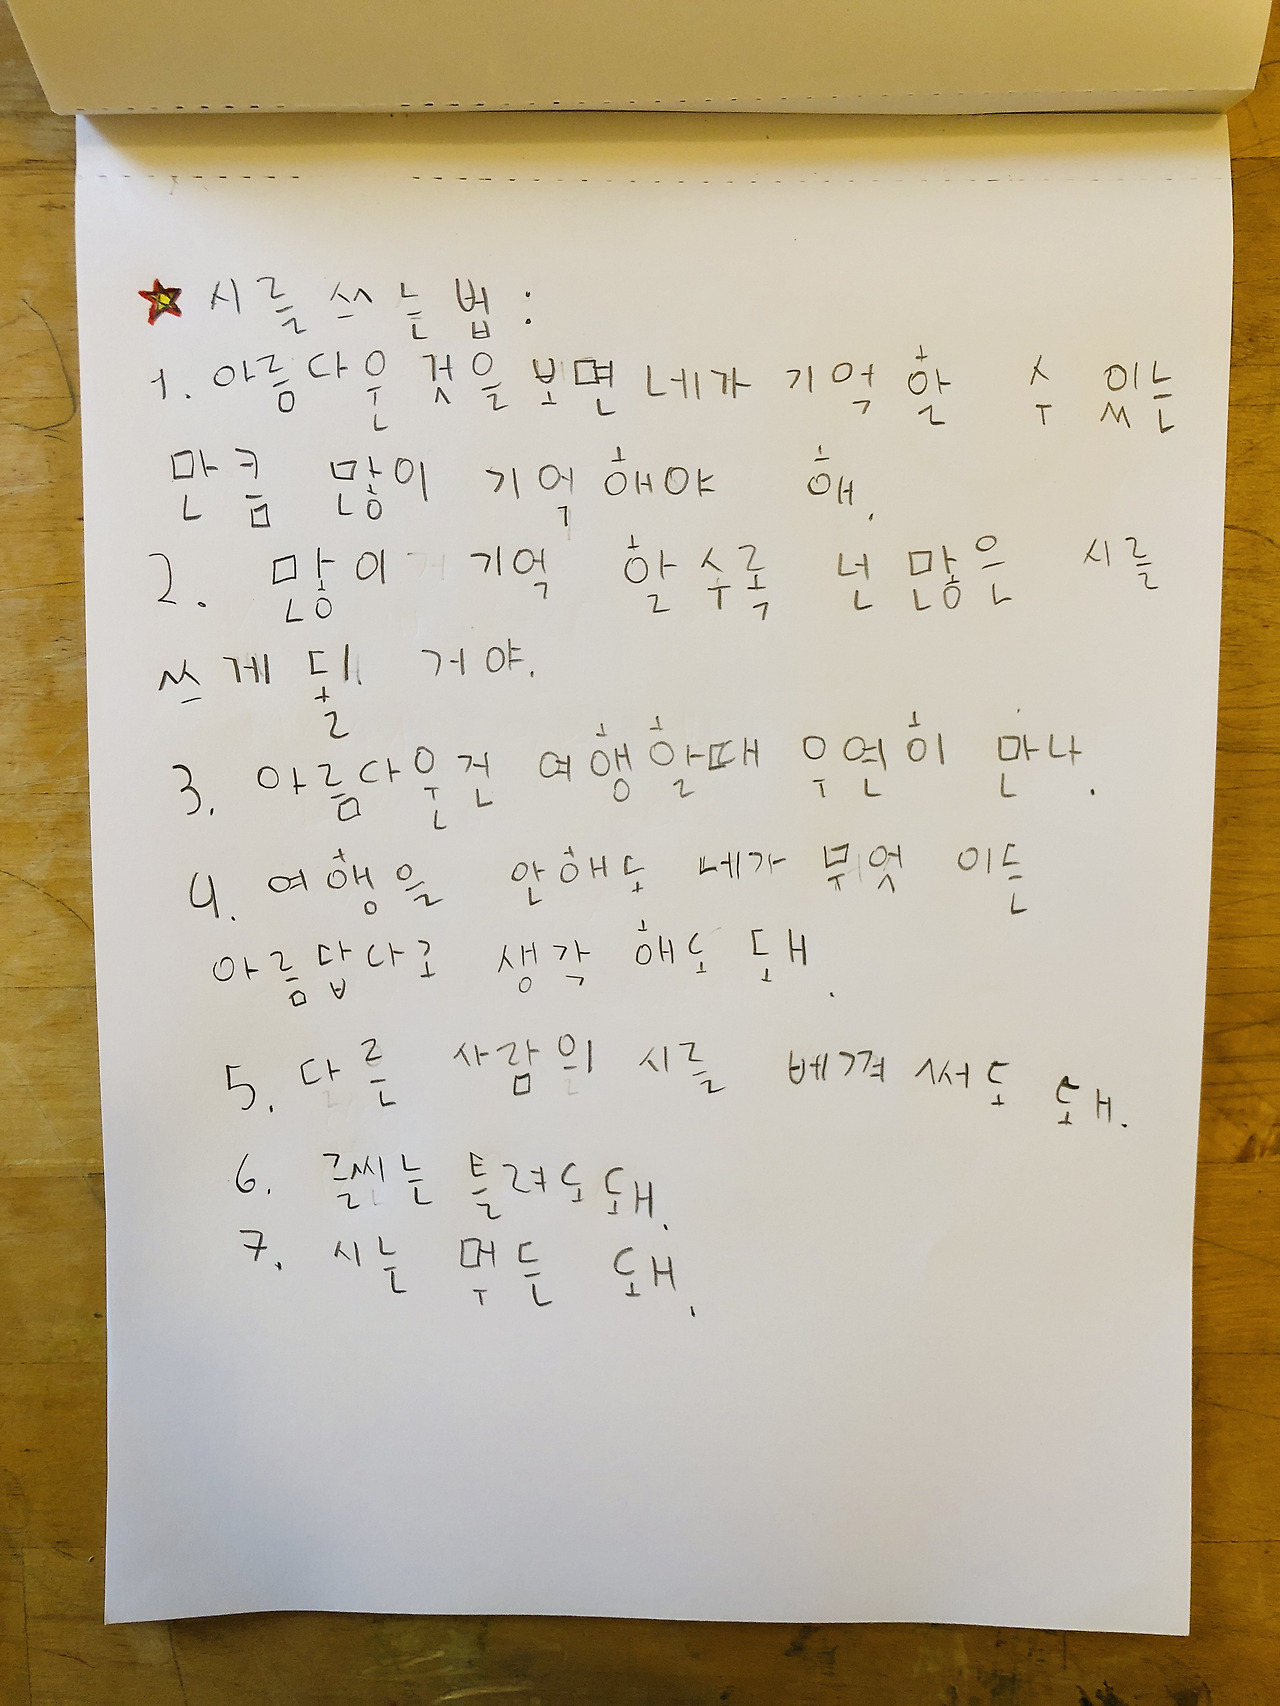 시를 쓰는법:
1. 아름다운 것을 보면 네가 기억 할 수 있는
만큼 많이 기억해야 해.
2. 많이 기억 할수록 넌 많은 시를
쓰게 될 거야.
3. 아름다운건 여행할때 우연히 만나.
4. 여행을 안해도 네가 무엇 이든
아름답다고 생각 해도 돼.
5. 달른 사람의 시를 베껴 써도 돼.
6. 글씨는 틀려도돼.
7. 시는 뭐든 돼.